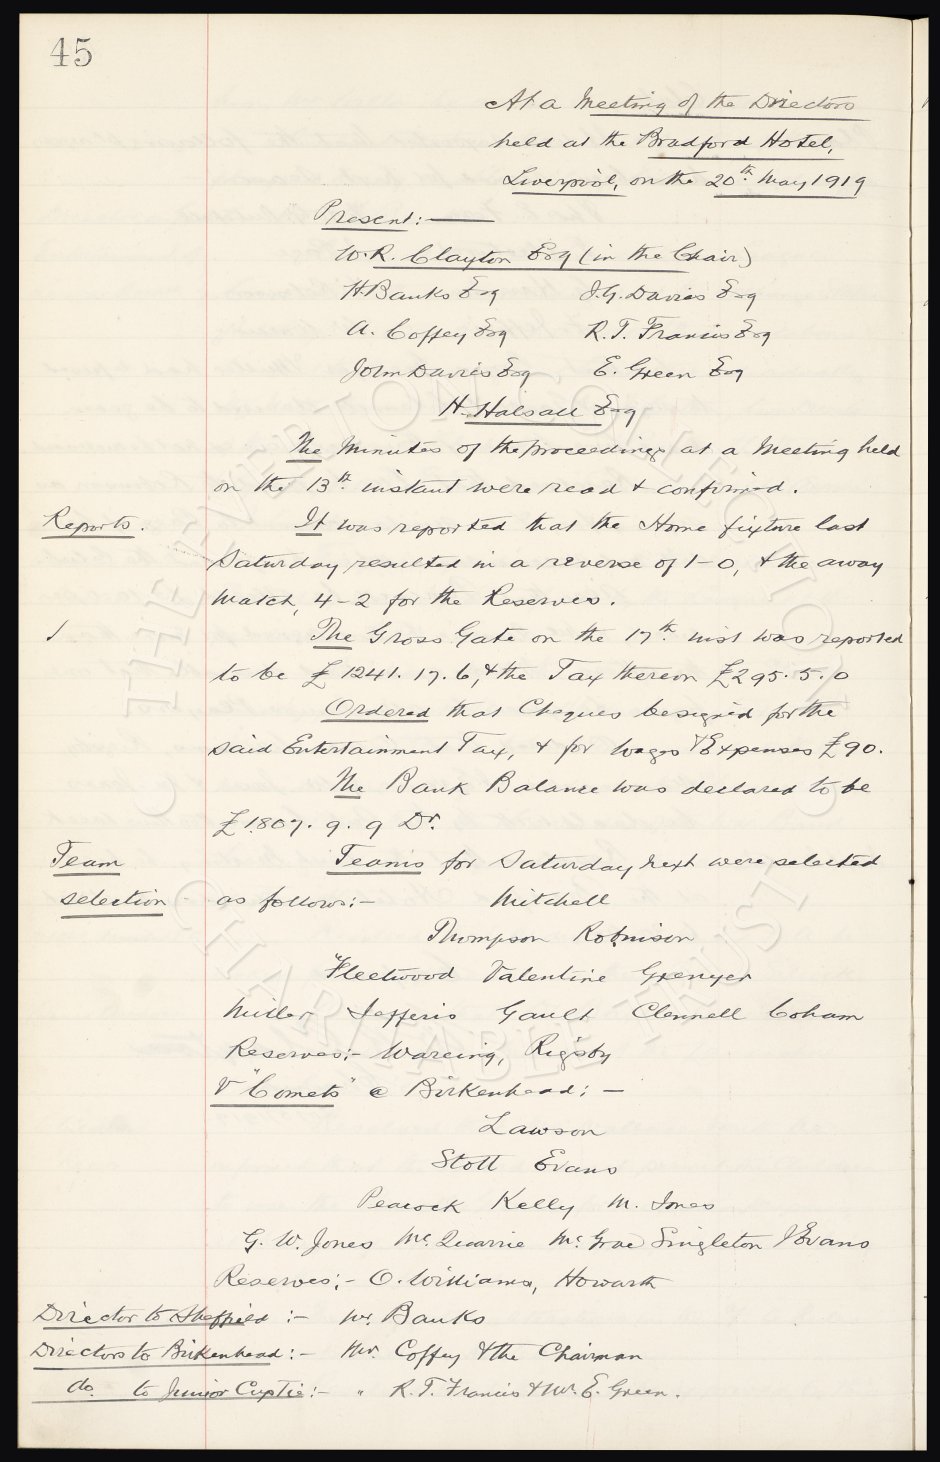 45
At a Meeting of the Directors
held at the Bradford Hotel,
Liverpool, on the 20th. May 1919
Present:—
W. R. Clayton Esq (in the Chair)
H. Banks Esq J. G. Davies Esq
A. Coffey Esq R. T. Francis Esq
John Davies Esq E. Green Esq
H. Halsall Esq
The Minutes of the proceedings at a Meeting held
on the 13th. instant were read & confirmed.
Reports. It was reported that the Home fixture last
Saturday resulted in a reverse of 1-0, & the away
match, 4-2 for the Reserves.
The Gross Gate on the 17th. inst was reported
to be £1241. 17. 6, & the Tax thereon £295. 5. 0
Ordered that Cheques be signed for the
said Entertainment Tax, & for Wages & Expenses £90.
The Bank Balance was declared to be
£1807. 9. 9 Dr.
Team Teams for Saturday next were selected
selection as follows:- Mitchell
Thompson Robinson
Fleetwood Valentine Grenyer
Miller Jefferis Gault Clennell Coham
Reserves:- Wareing, Rigsby
V "Comets" @ Birkenhead: —
Lawson
Stott Evans
Peacock Kelly M. Jones
G. W. Jones McQuarrie McGrae Singleton J Evans
Reserves:- O. Williams, Howarth
Director to Sheffield :- Mr. Banks
Directors to Birkenhead:- Mr. Coffey & the Chairman
do. to Junior Cup Tie:- " R. T. Francis & Mr. E. Green.